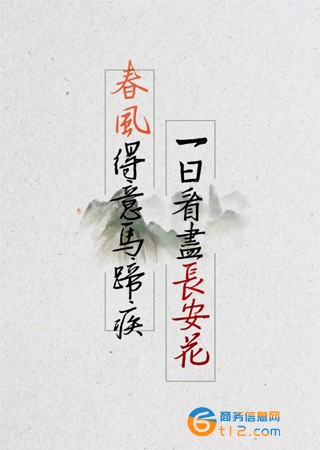 春風得意馬蹄疾
一日看盡長安花
商务信息网
6t12.com